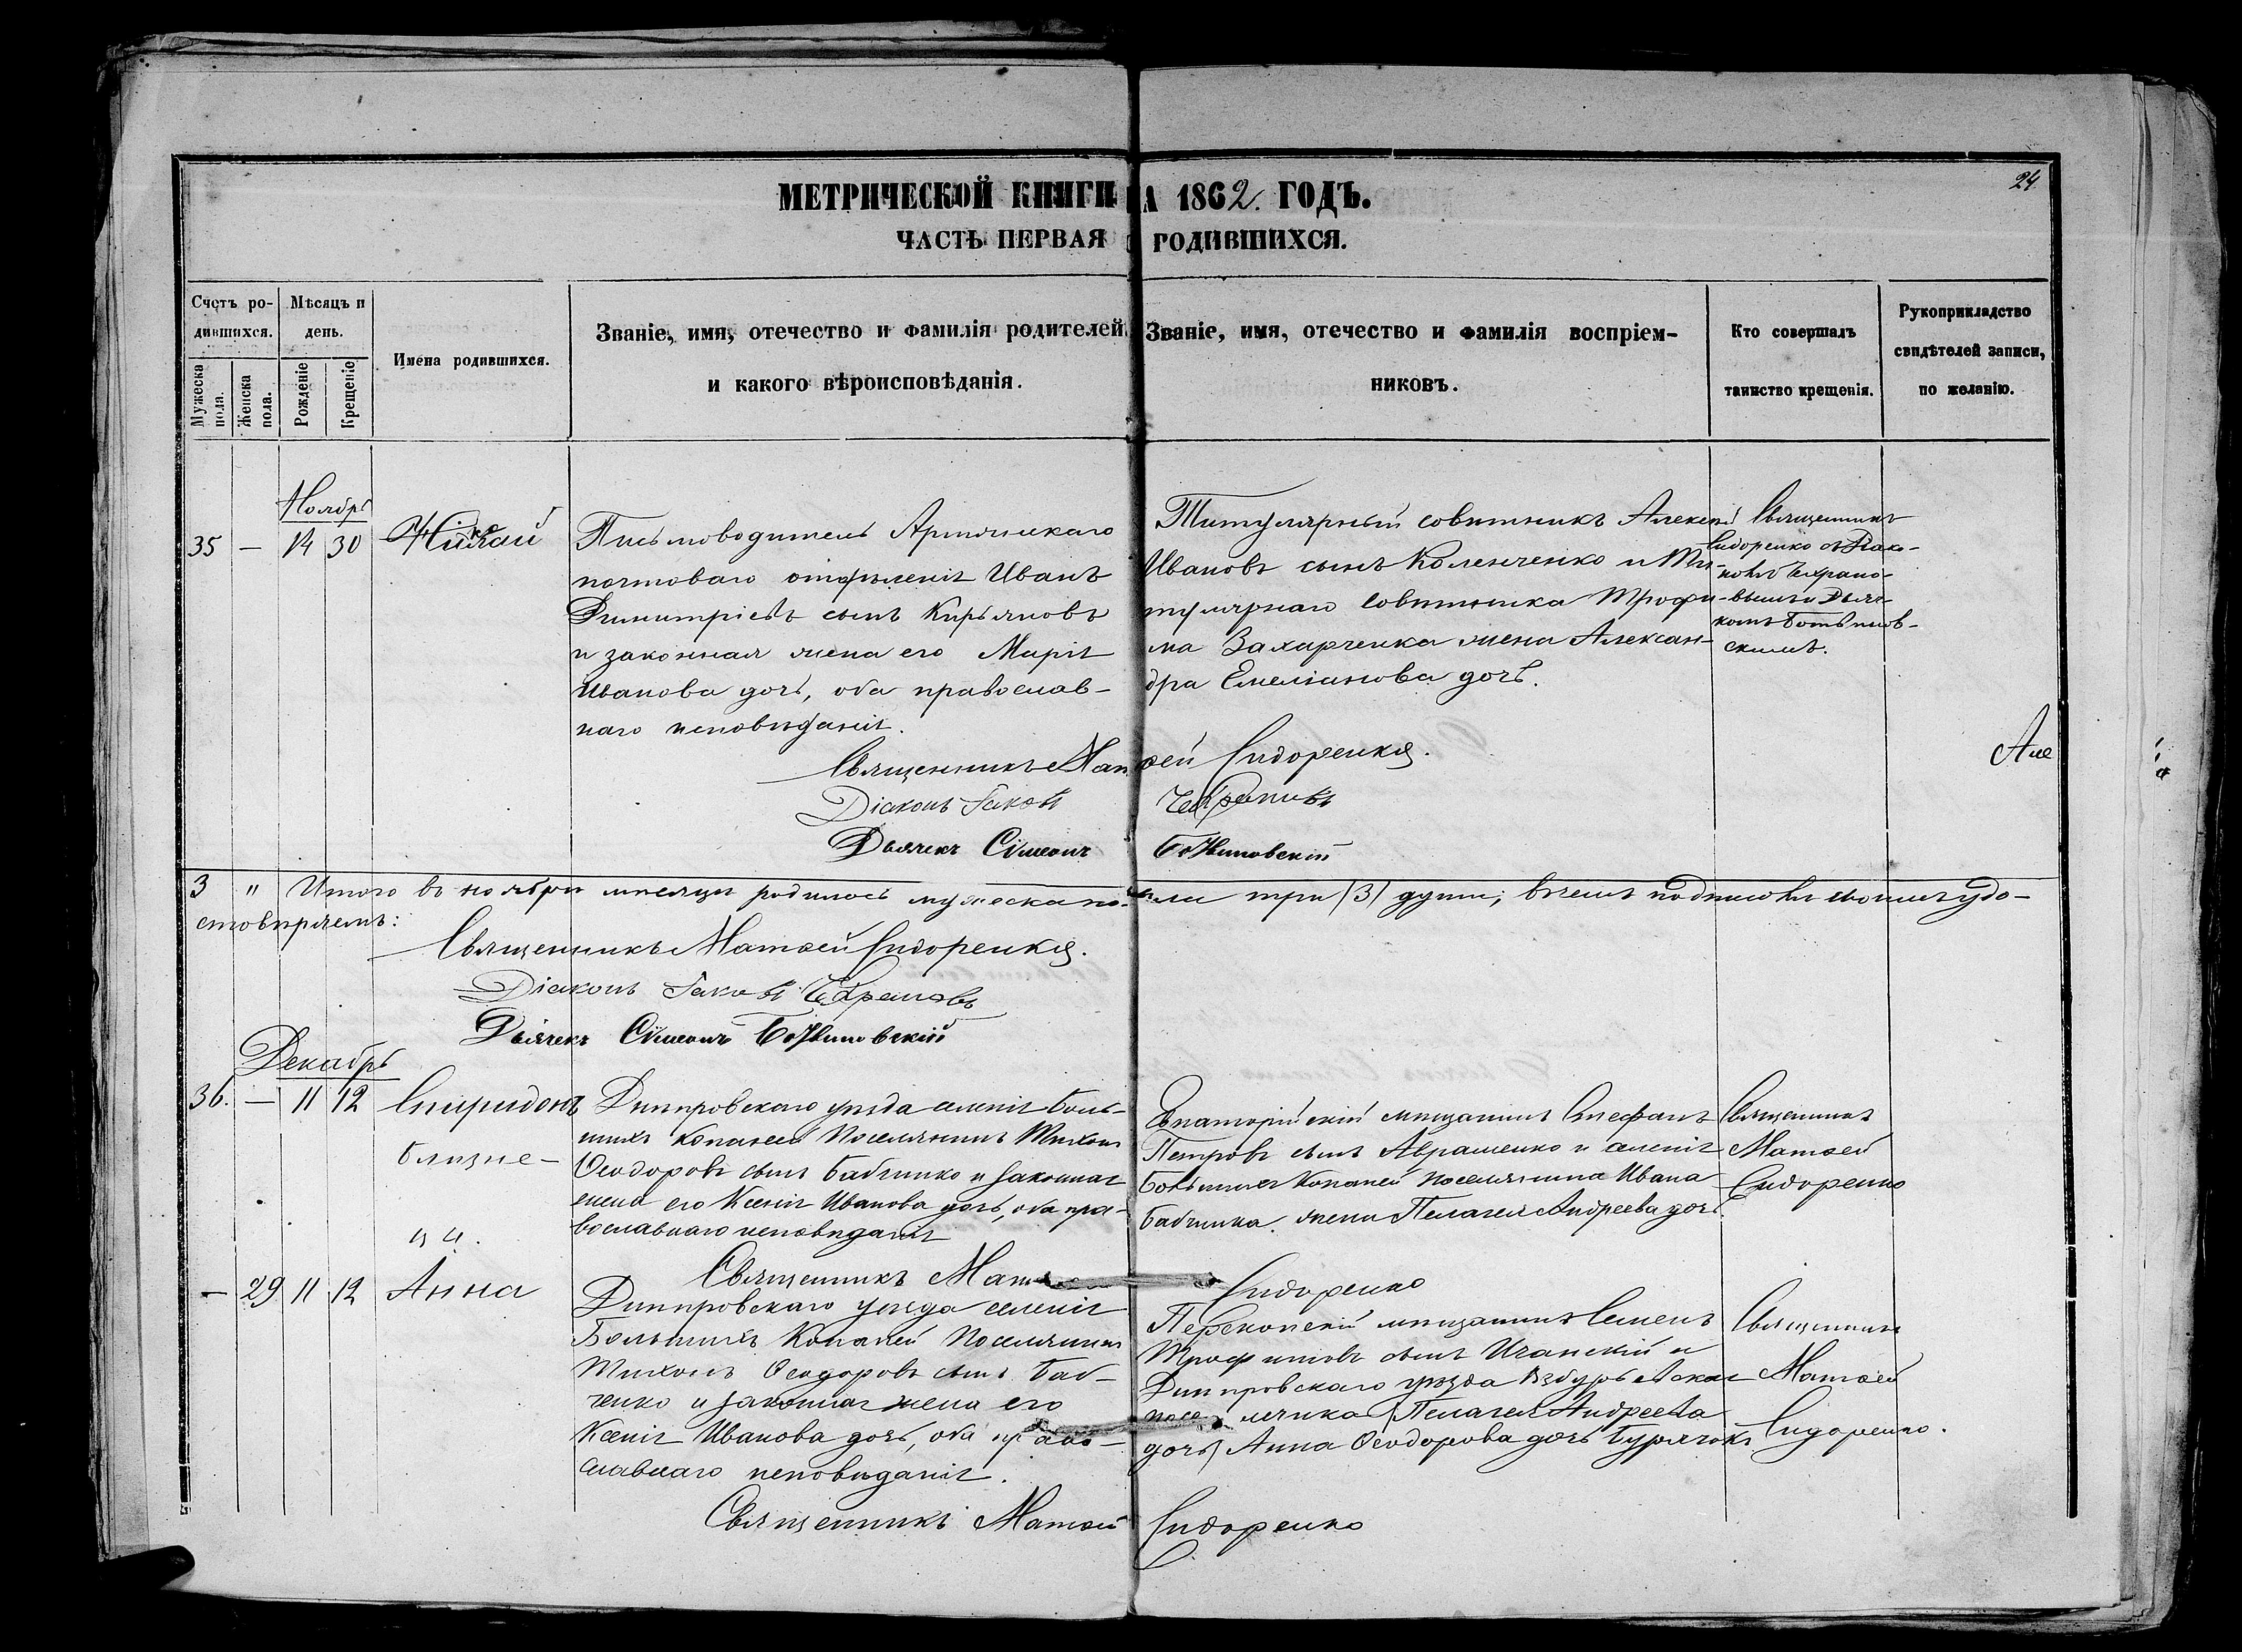 24
МЕТРИЧЕСКОЙ КНИГИ НА 1862 ГОДЪ.
ЧАСТЬ ПЕРВАЯ О РОДИВШИХСЯ.
Счетъ ро-
дившихся.
Мужеска пола.
Женска пола.
Мѣсяцъ и
день.
Рожденіе
Крещеніе
Имена родившихся.
Званіе, имя, отечество и фамилія родителей
и какого вѣроисповѣданія.
Званіе, имя, отечество и фамилія воспріем-
никовъ.
Кто совершалъ
таинство крещенія.
Рукоприкладство
свидѣтелей записи,
по желанію.
Ноябрь
35 — 14 30
Письмоводитель Армянскаго
почтоваго отдѣленія Иванъ
Димитріевъ сынъ Кирьяновъ
и законная жена его Марія
Иванова дочь, оба православ-
наго исповѣданія.
Титулярный совѣтникъ Алексѣй
Ивановъ сынъ Коленченко и Ти-
тулярнаго Совѣтника Трофи-
ма Захарченка жена Алексан-
дра Емеліанова дочь.
Священникъ
Сидоренко съ Діако-
номъ
и Дьяч-
комъ
скимъ.
Священникъ Матѳей Сидоренко.
Діаконъ Іаковъ
Дьячекъ Сѵмеонъ
Але
3 " Итого въ ноябрѣ мѣсяцѣ родилось мужеска пола три (3) души; въ чемъ подписомъ своимъ удо-
стовѣряемъ:
Священникъ Матѳей Сидоренко.
Діаконъ Іаковъ
Дьячекъ Сѵмеонъ
Декабрь
36. — 11 12 Спиридонъ
близне-
цы.
Днѣпровскаго уѣзда селенія Боль-
шихъ Копаней Поселянинъ Тихонъ
Ѳеодоровъ сынъ Бабченко и законная
жена его Ксенія Иванова дочь, оба пра-
вославнаго исповѣданія
Евпаторійскій мѣщанинъ Стефанъ
Петровъ сынъ Авраменко и селенія
Большихъ Копаней поселянина Ивана
Бабченка жена Пелагея Андреева дочь.
Священникъ
Матѳей
Сидоренко
Священникъ Матѳей Сидоренко
— 29 11 12 Анна
Днѣпровскаго уѣзда селенія
Большихъ Копаней Поселянинъ
Тихонъ Ѳеодоровъ сынъ Баб-
ченко и законная жена его
Ксенія Иванова дочь, оба право-
славнаго исповѣданія.
Перекопскій мѣщанинъ Семенъ
Трофимовъ сынъ и
Днѣпровскаго уѣзда
Пелагея Андреева
дочь) Анна Ѳеодорова дочь
Священникъ
Матѳей
Сидоренко.
Священникъ Матѳей Сидоренко